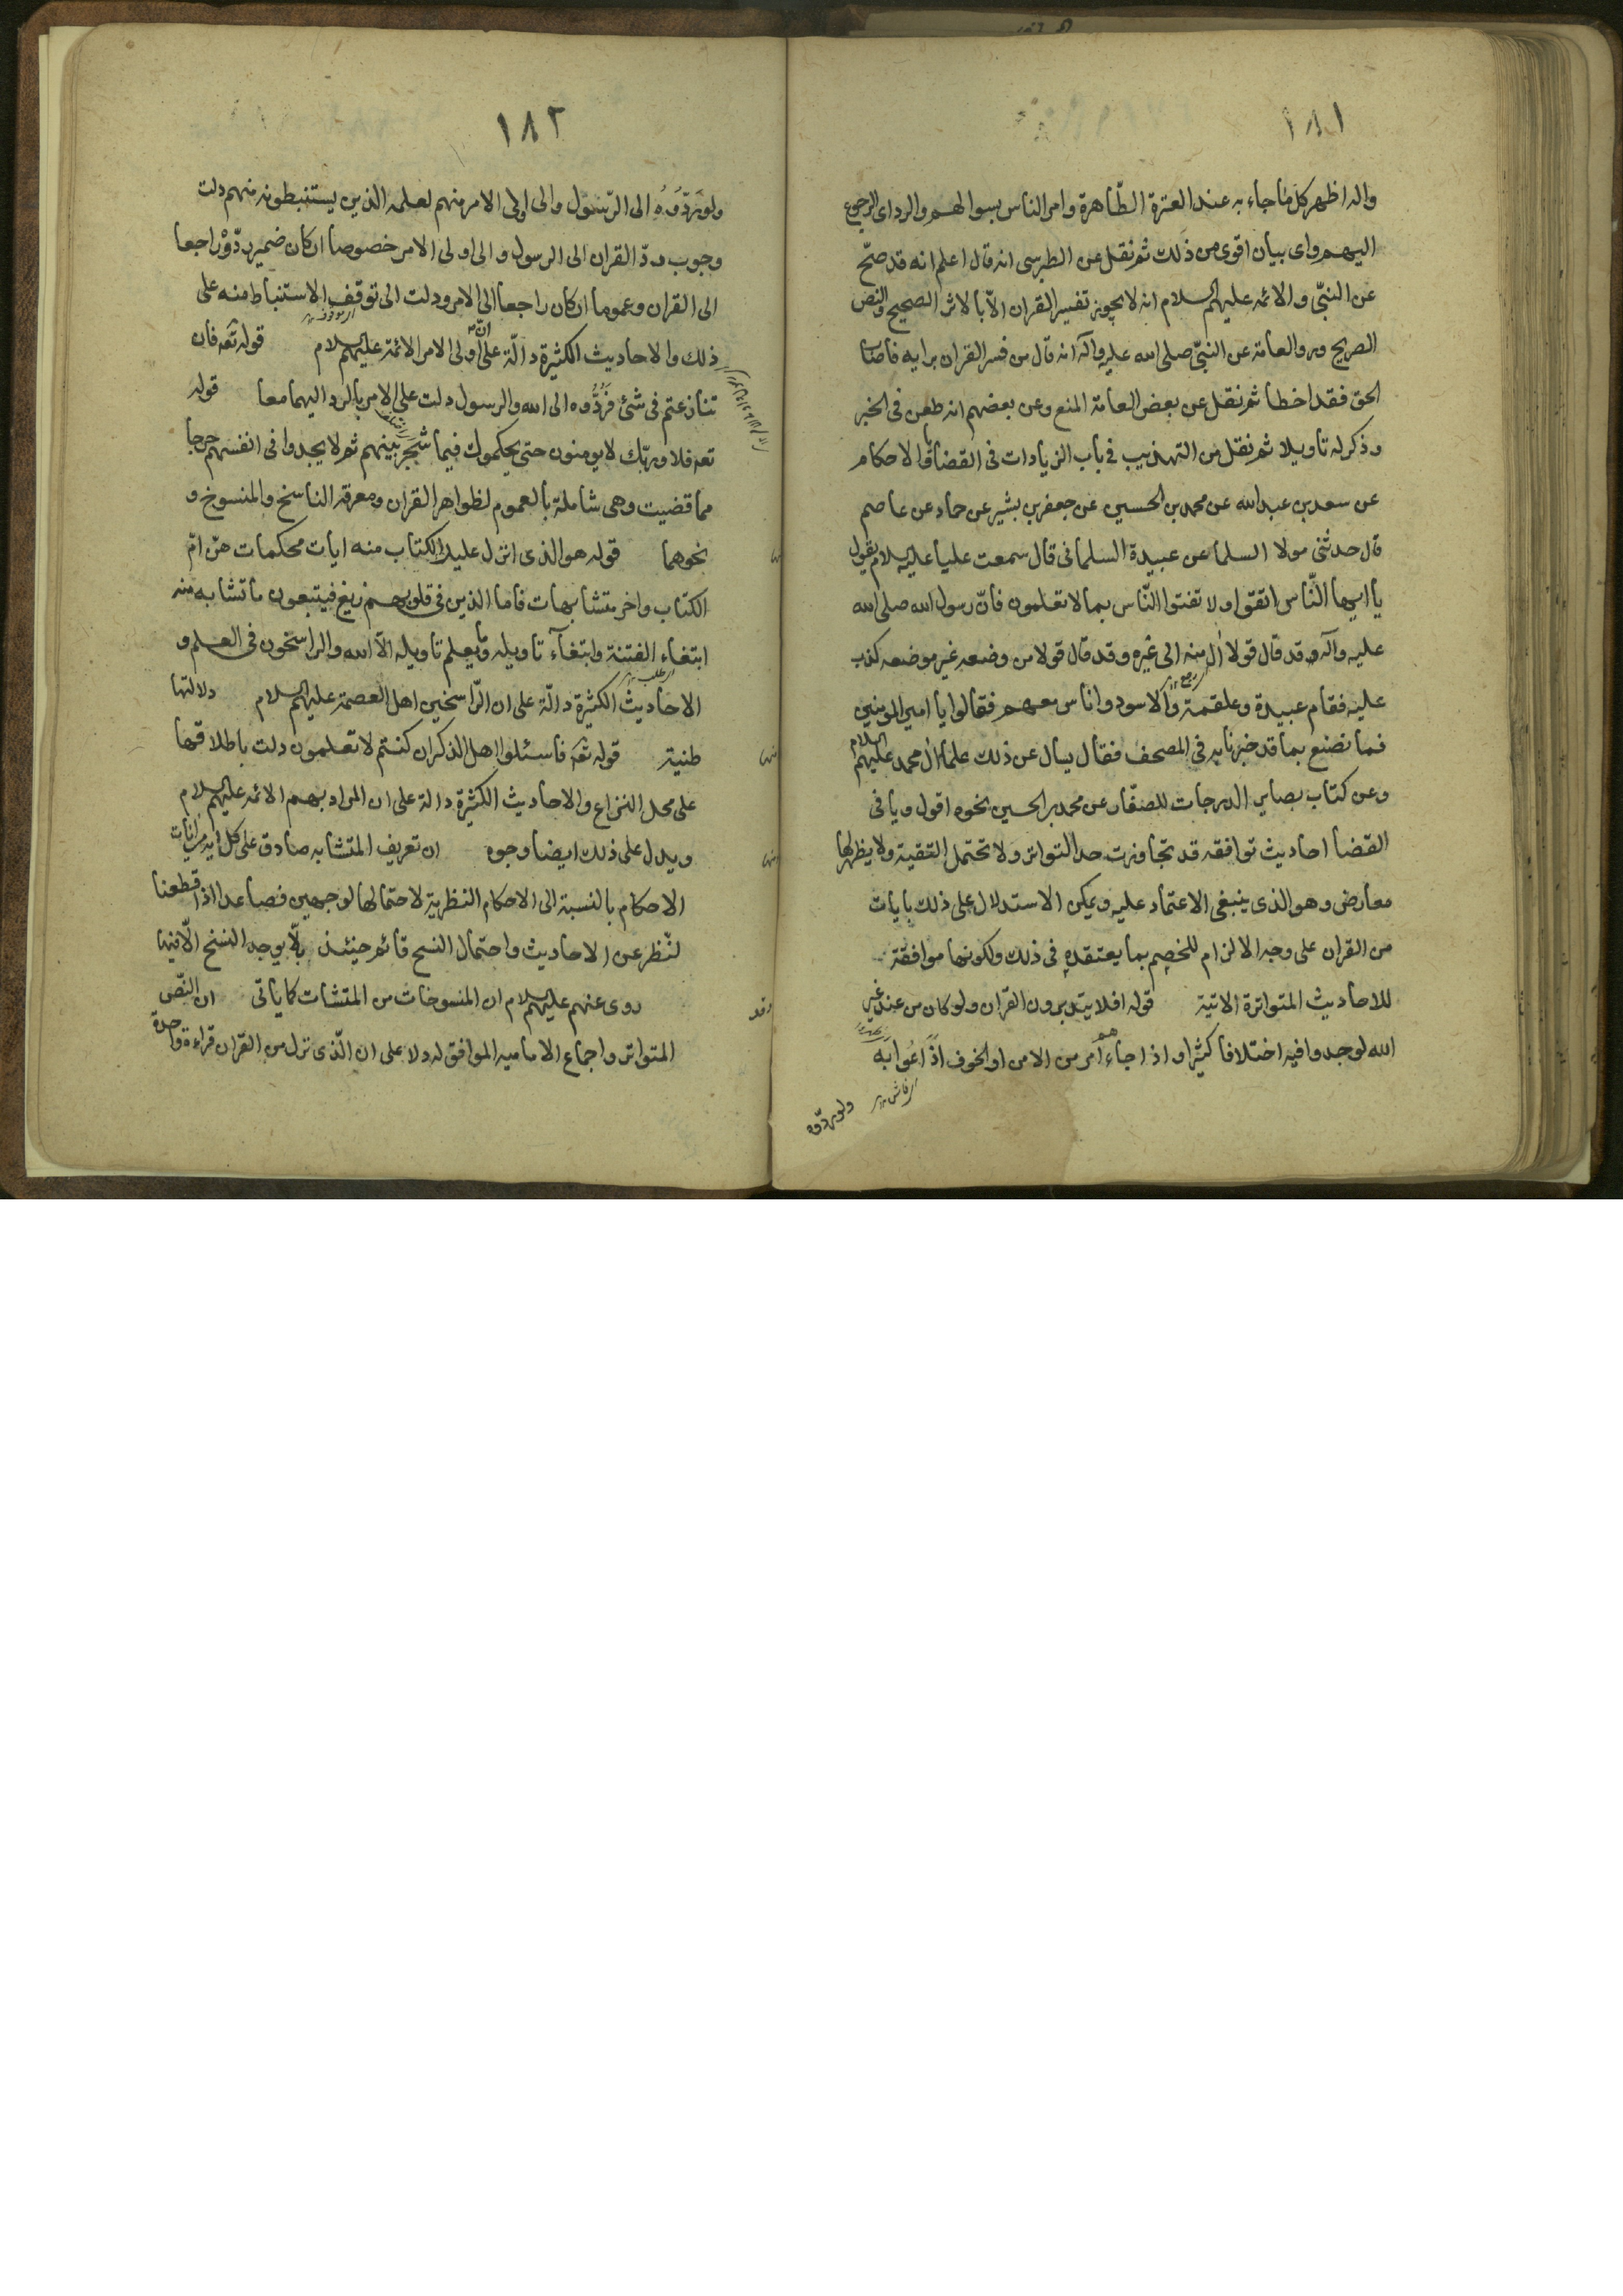 ١٨١
واله اظهر كل ما جاء به عند العترة الطّاهرة وامر الناس بسوالهم والرد اى الرجوع
اليهم واى بيان اقوى من ذلك ثم نقل عن الطبرسى انه قال اعلم انه قد صحّ
عن النبىّ والائمه عليهم السلام انه لا يجوز تفسير القران الّا بالاثر الصحيح والنص
الصريح وروالعامة عن النبىّ صلى الله عليه واله انه قال من فسر القران برايه فاصاب
الحق فقد اخطا ثم نقل عن بعض العامة المنع وعن بعضهم انه طعن فى الخبر
وذكر له تاويلا ثم نقل من التهذيب فى باب الزيادات فى القضايا والاحكام
عن سعد بن عبد الله عن محمد بن الحسين عن جعفر بن بشير عن حماد عن عاصم
قال حدثنى مولا السلما عن عبيدة السلمانى قال سمعت عليا عليه السلام يقول
يا ايها النّاس اتقوا ولا تفتوا النّاس بما لا تعلمون فانّ رسول الله صلى الله
عليه وآله قد قال قولا اٰل منه الى غيره وقد قال قولا من وضعه غير موضعه كذب
عليه فقام عبيدة وعلقمة والاسود واناس معهم فقالوا يا امير المومنين
فما نصنع بما قد خبرنا به فى المصحف فقال يسال عن ذلك علما اٰل محمد عليهم السلام
وعن كتاب بصاير الدرجات للصفّار عن محمد بن الحسين نحوه اقول وياتى فى
القضا احاديث توافقه قد تجاوزت حد التواتر ولا تحتمل التقية ولا يظهر لها
معارض وهو الذى ينبغى الاعتماد عليه ويمكن الاستدلال على ذلك بايات
من القران على وجه الالزام للخصم بما يعتقده فى ذلك ولكونها موافقة
للاحاديث المتواترة الاتية قوله افلا يتدبرون القران ولو كان من عند غير
الله لوجدوا فيه اختلافا كثيرا واذا جاءهم امر من الامن او الخوف اذاعوا به
ولو ردّوه
١٨٢
ولو ردّوه الى الرّسول والى اولى الامر منهم لعلمه الذين يستنبطونه منهم دلت
وجوب ردّ القران الى الرسول والى اولى الامر خصوصا ان كان ضمير ردّوه راجعا
الى القران وعموما ان كان راجعا الى الامر ودلت الى توقف الاستنباط منه على
ذلك والاحاديث الكثيرة دالّة على انّ اولى الامر الائمة عليهم السلام قوله تعه فان
تنازعتم فى شئ فردّوه الى الله والرسول دلت على الامر بالرد اليهما معا قوله
تعه فلا وربّك لا يومنون حتى يحكموك فيما شجر بينهم ثم لا يجدوا فى انفسهم حرجا
مما قضيت وهى شاملة بالعموم لظواهر القران ومعرفة الناسخ والمنسوخ و
نحوهما قوله هو الذى انزل عليك الكتاب منه ايات محكمات هنّ امّ
الكتاب واخر متشابهات فاما الذين فى قلوبهم زيغ فيتبعون ما تشابه منه
ابتغاء الفتنة وابتغآء تاويله وما يعلم تاويله الّا الله والراسخون فى العلم و
الاحاديث الكثيرة دالّة على ان الرّاسخين اهل العصمة عليهم السلام دلالتها
ظنية قوله تعه فاسئلوا اهل الذكر ان كنتم لا تعلمون دلت باطلاقها
على محل النزاع والاحاديث الكثيرة دالة على ان المراد بهم الائمه عليهم السلام
ويدل على ذلك ايضا وجوه ان تعريف المتشابه صادق على كل اية من ايات
الاحكام بالنسبة الى الاحكام النظرية لاحتمالها لوجهين فصاعدا اذا قطعنا
لنّظر عن الاحاديث واحتمال النسخ قائم حينئذ بل لا يوجد النسخ الّا فيها
روى عنهم عليهم السلام ان المنسوخات من المتشات كما ياتى ان النّص
المتواتر واجماع الاماميه الموافق له دلا على ان الّذى نزل من القران قراءة واحدة